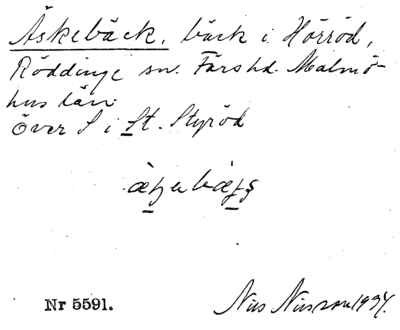 Äskebäck, bäck i Hörröd,
Röddinge sn. Färs hd. Malmö-
hus län
över S i St. Styröd
Nr 5591. Nils Nilsson 1934.